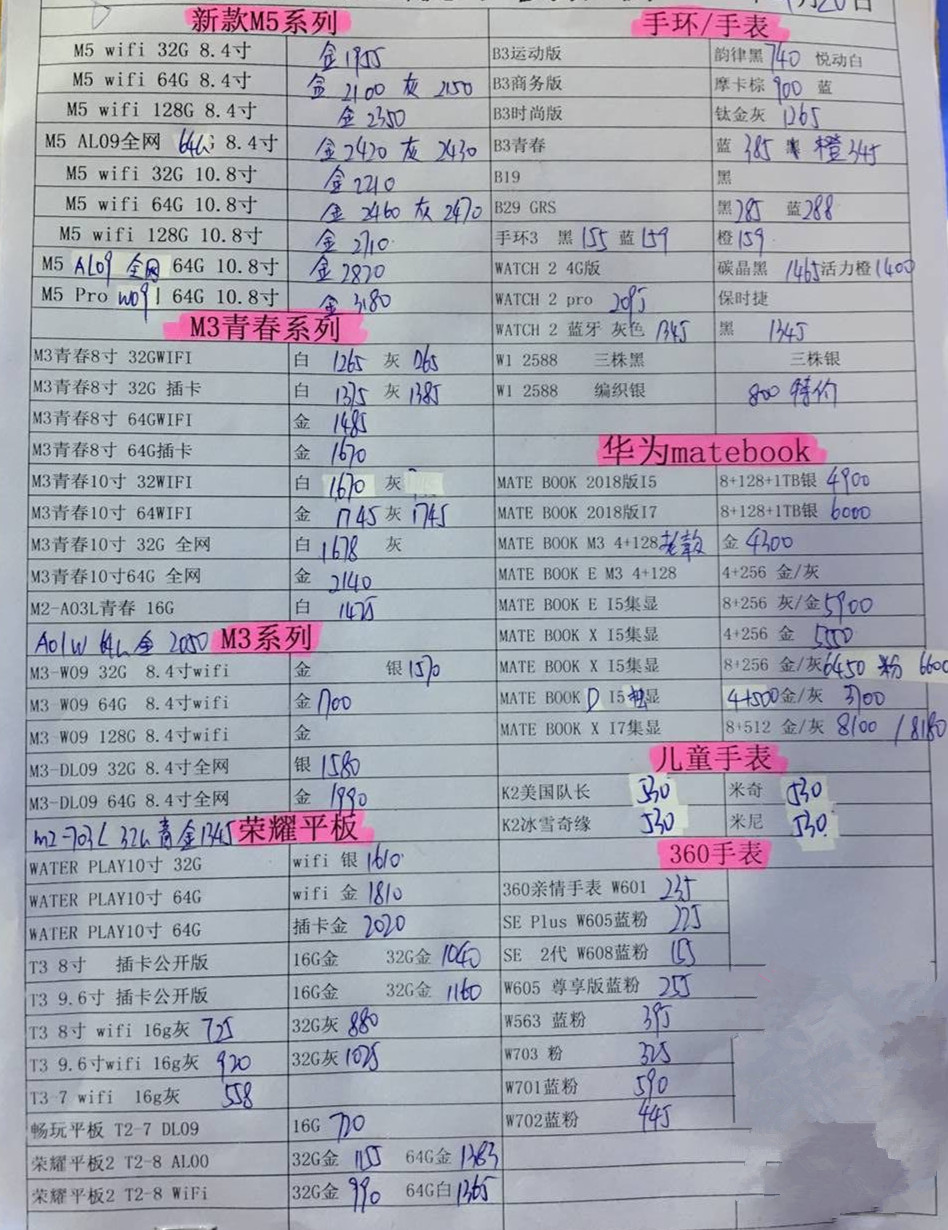 月20日
新款M5系列
M5 wifi 32G 8.4寸 金1955
M5 wifi 64G 8.4寸 金 2100 灰 2150
M5 wifi 128G 8.4寸 金 2350
M5 AL09全网 64G 8.4寸 金2420 灰 2430
M5 wifi 32G 10.8寸 金2210
M5 wifi 64G 10.8寸 金 2460 灰 2470
M5 wifi 128G 10.8寸 金 2710
M5 AL09 全网 64G 10.8寸 金2820
M5 Pro W09 64G 10.8寸 金 3180
M3青春系列
M3青春8寸 32GWIFI 白 1265 灰 1265
M3青春8寸 32G 插卡 白 1375 灰 1385
M3青春8寸 64GWIFI 金 1485
M3青春8寸 64G插卡 金 1670
M3青春10寸 32WIFI 白 1670 灰
M3青春10寸 64WIFI 金 1745 灰 1745
M3青春10寸 32G 全网 白 1678 灰
M3青春10寸64G 全网 金 2140
M2-A03L青春 16G 白 1425
A01W 64G 金 2050 M3系列
M3-W09 32G 8.4寸wifi 金 银1570
M3-W09 64G 8.4寸wifi 金 1700
M3-W09 128G 8.4寸wifi 金
M3-DL09 32G 8.4寸全网 银 1580
M3-DL09 64G 8.4寸全网 金 1990
M2-703L 32G 青 金1345 荣耀平板
WATER PLAY10寸 32G wifi 银 1610
WATER PLAY10寸 64G wifi 金 1810
WATER PLAY10寸 64G 插卡金 2020
T3 8寸 插卡公开版 16G金 32G金 1040
T3 9.6寸 插卡公开版 16G金 32G金 1160
T3 8寸 wifi 16g灰 725 32G灰 880
T3 9.6寸wifi 16g灰 920 32G灰 1025
T3-7 wifi 16g灰 558
畅玩平板 T2-7 DL09 16G 720
荣耀平板2 T2-8 AL00 32G金 1155 64G金 1383
荣耀平板2 T2-8 WiFi 32G金 990 64G白 1365
手环/手表
B3运动版 韵律黑 740 悦动白
B3商务版 摩卡棕 900 蓝
B3时尚版 钛金灰 1265
B3青春 蓝 385 橙 345
B19 黑
B29 GRS 黑285 蓝288
手环3 黑 155 蓝 159 橙159
WATCH 2 4G版 碳晶黑 1465活力橙1400
WATCH 2 pro 2095 保时捷
WATCH 2 蓝牙 灰色 1345 黑 1345
W1 2588 三株黑 三株银
W1 2588 编织银 800 特价
华为matebook
MATE BOOK 2018版I5 8+128+1TB银 4900
MATE BOOK 2018版I7 8+128+1TB银 6000
MATE BOOK M3 4+128老款 金 4300
MATE BOOK E M3 4+128 4+256 金/灰
MATE BOOK E I5集显 8+256 灰/金5900
MATE BOOK X I5集显 4+256 金 5550
MATE BOOK X I5集显 8+256 金/灰6450 粉 6600
MATE BOOK D I5独显 4+500金/灰 3700
MATE BOOK X I7集显 8+512 金/灰 8100 / 8180
儿童手表
K2美国队长 530 米奇 530
K2冰雪奇缘 530 米尼 530
360手表
360亲情手表 W601 235
SE Plus W605蓝粉 225
SE 2代 W608蓝粉 155
W605 尊享版蓝粉 255
W563 蓝粉 395
W703 粉 325
W701蓝粉 590
W702蓝粉 445